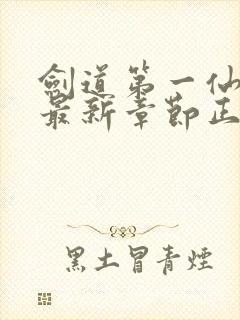 劍道第一仙
最新章節正
黑土冒青煙